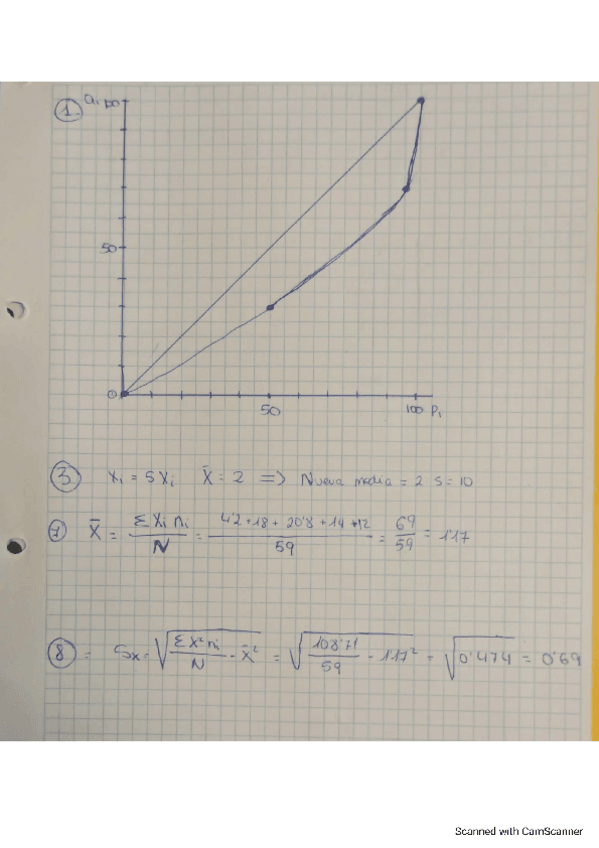 1. qi 100
50
0
50 100 Pi
3 Yi = 5Xi X̄ = 2 => Nueva media = 2·5 = 10
7 X̄ = ΣXi ni / N = 4'2 + 18 + 20'8 + 14 + 12 / 59 = 69 / 59 = 1'17
8 = Sx = √(ΣX² ni / N - X̄²) = √(108'71 / 59 - 1'17²) = √0'474 = 0'69
Scanned with CamScanner